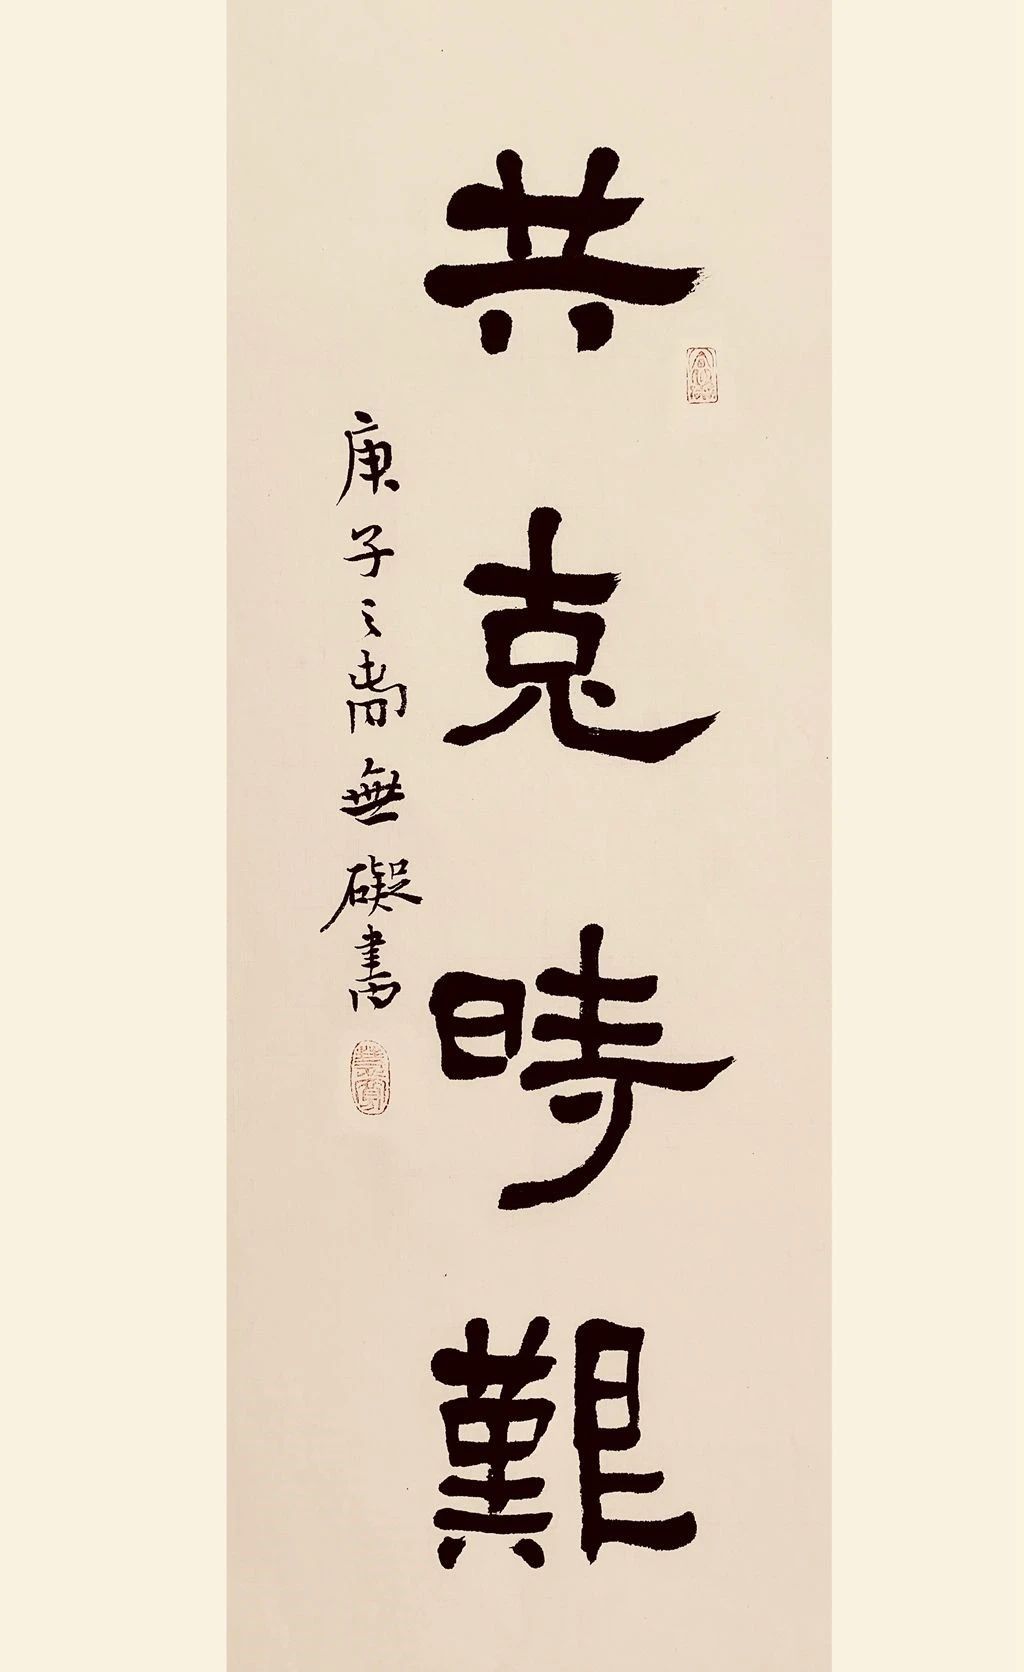 共克時艱
庚子之耑無礙書